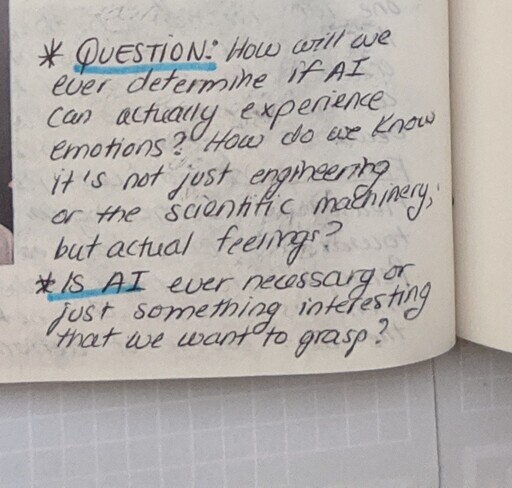 * QUESTION: How will we
ever determine if AI
can actually experience
emotions? How do we know
it's not just engineering
or the scientific machinery,
but actual feelings?
* IS AI ever necessary or
just something interesting
that we want to grasp?